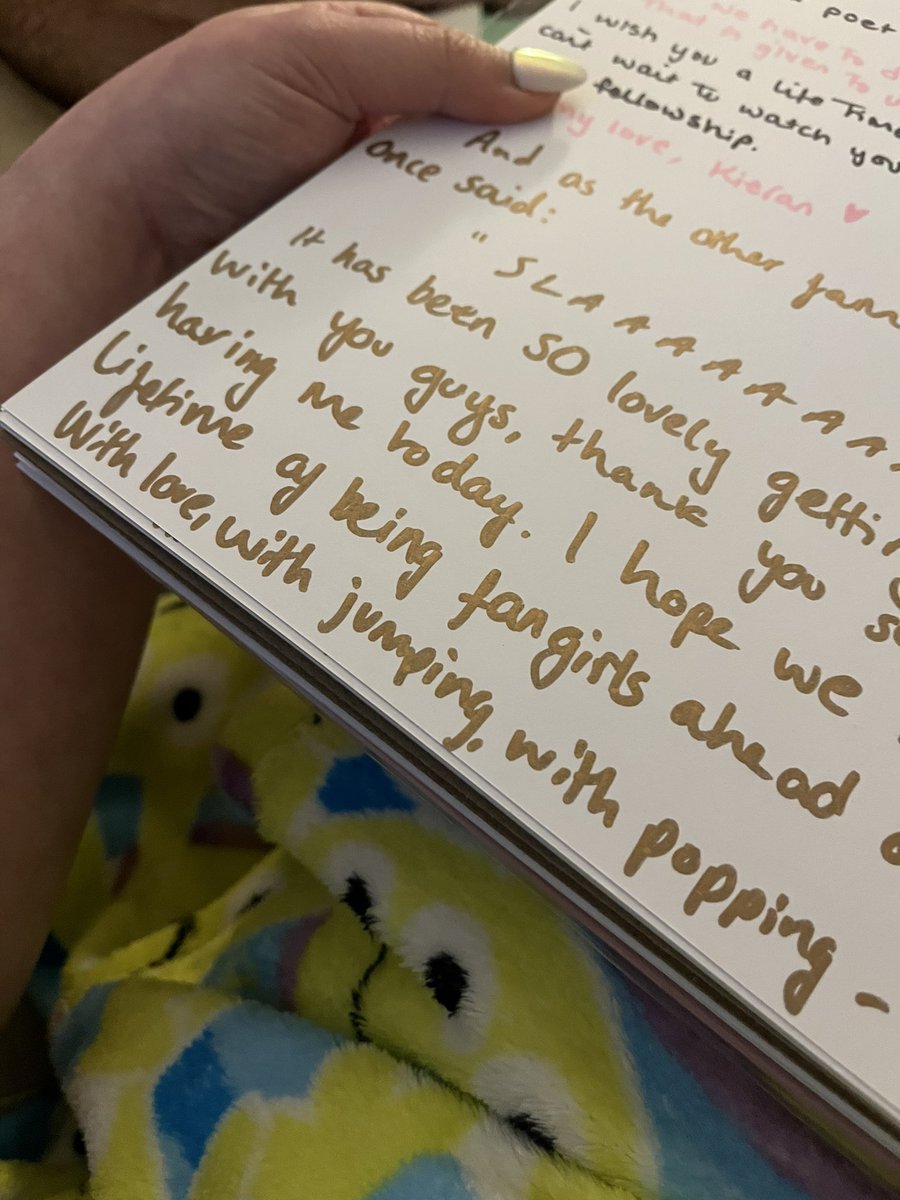 poet
we have to d
that is given to u
I wish you a life time
can't wait to watch you
fellowship.
my love, Kieran ♥
And as the other
once said:
"SLAAAAAAAA
It has been SO lovely getting
with you guys, thank you s
having me today. I hope we
Lifetime of being fangirls ahead o
With love, with jumping, with popping -